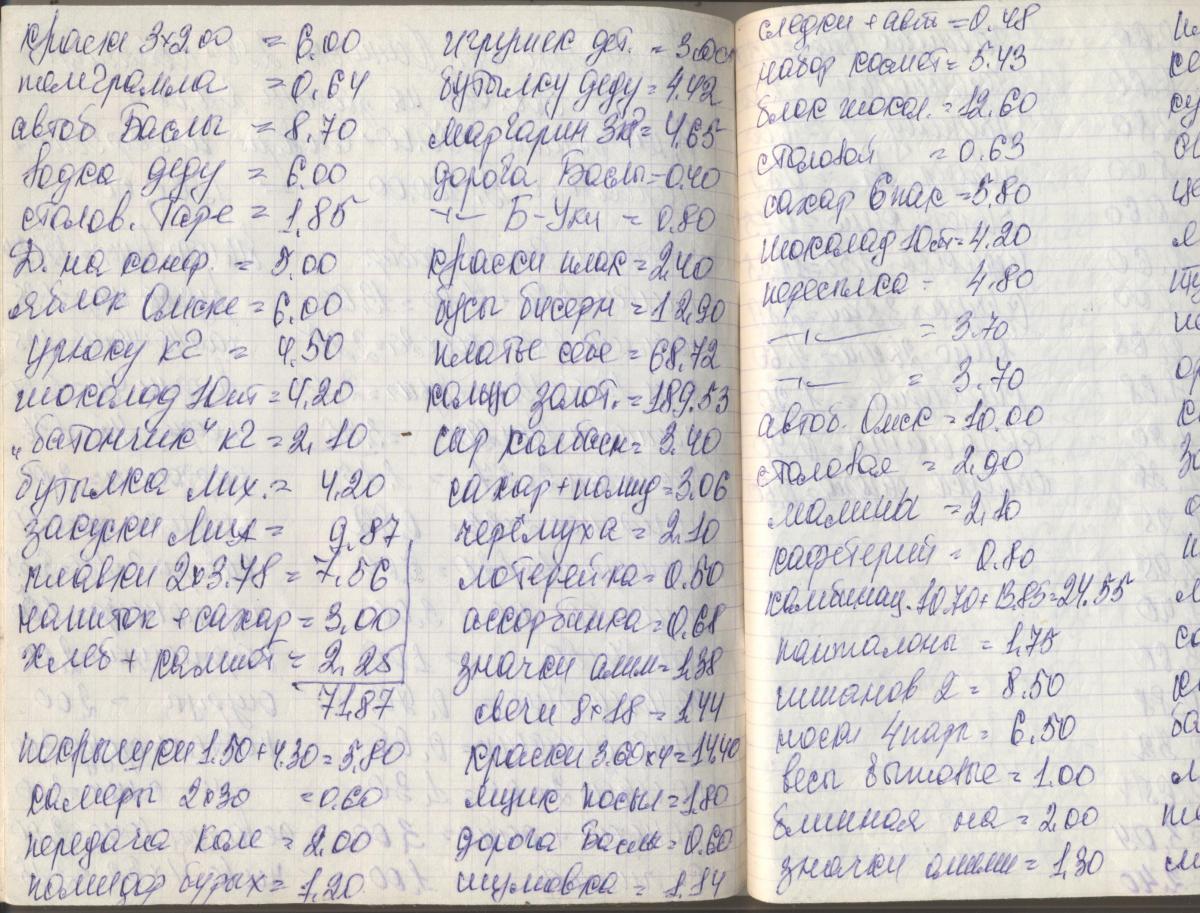 краски 3х2.00 = 6.00
телеграмма = 0.64
автоб. Баслы = 8.70
водка деду = 6.00
столов. Таре = 1.85
Д. на конф. = 5.00
яблок Омске = 6.00
урюку кг = 4.50
шоколад 10шт = 4.20
"батончик" кг = 2.10
бутылка Мих. = 4.20
закуски = 9.87
плавки 2х3.78 = 7.56
напиток + сахар = 3.00
хлеб + компот = 2.25
71.87
покрышки 1.50+4.30=5.80
камеры 2х30 = 0.60
передача Коле = 2.00
помидор бурых = 1.20
игрушек дет. = 3.00
бутылку деду = 4.42
маргарин 3кг = 4.65
дорога Баслы = 0.40
—"— Б-Уки = 0.80
краски плак = 2.40
бусы бисерн = 12.90
платье себе = 68.72
кольцо золот. = 189.53
сыр колбасн = 3.40
сахар + помид = 3.06
черёмуха = 2.10
лотерейка = 0.50
аскорбинка = 0.68
значки олим = 1.38
свечи 8х18 = 1.44
краски 3.60х4 = 14.40
ящик посыл = 1.80
дорога Баслы = 0.60
шумовка = 1.14
следки + авт = 0.48
набор космет = 5.43
блок шокол. = 12.60
столовой = 0.63
сахар 6 пак = 5.80
шоколад 10шт = 4.20
пересылка - 4.80
—"— = 3.70
—"— = 3.70
автоб. Омск = 10.00
столовая = 2.90
малины = 2.10
кафетерий = 0.80
комбинац. 10.70+13.85=24.55
панталоны = 1.75
штанов 2 = 8.50
носки 4 пары = 6.50
весы бытовые = 1.00
блинная на = 2.00
значки олимп = 1.30